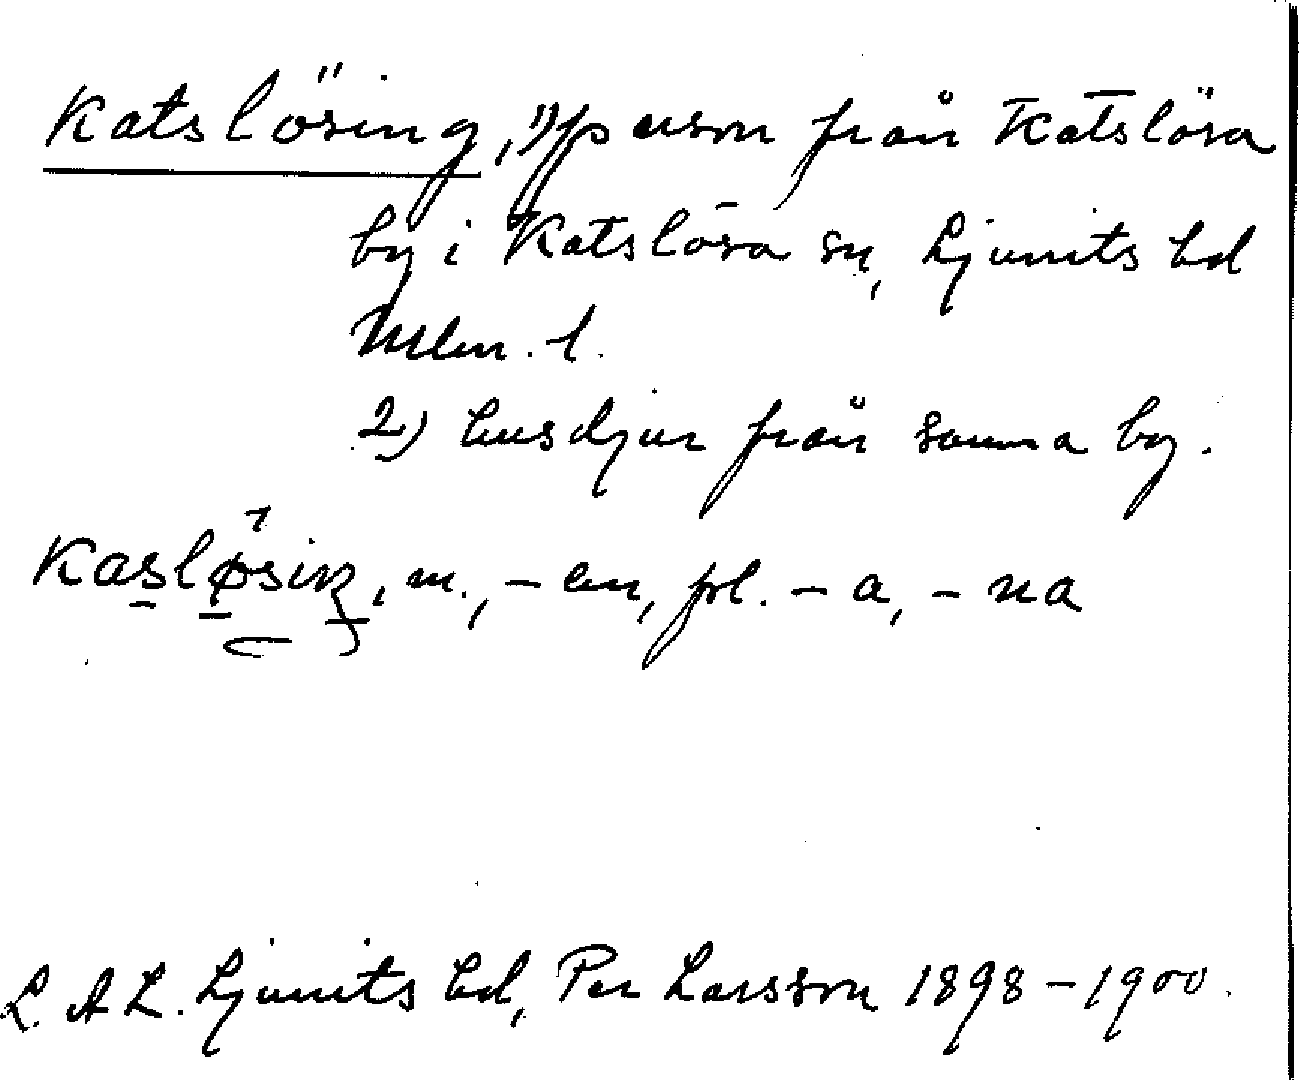 Katslösing, 1) person från Katslösa
by i Katslösa sn, Ljunits hd
Mlm. l.
2) husdjur från samma by.
Kaslø̄siŋ, m., -en, pl. -a, -na
L.A.L. Ljunits hd, Per Larsson 1898-1900.